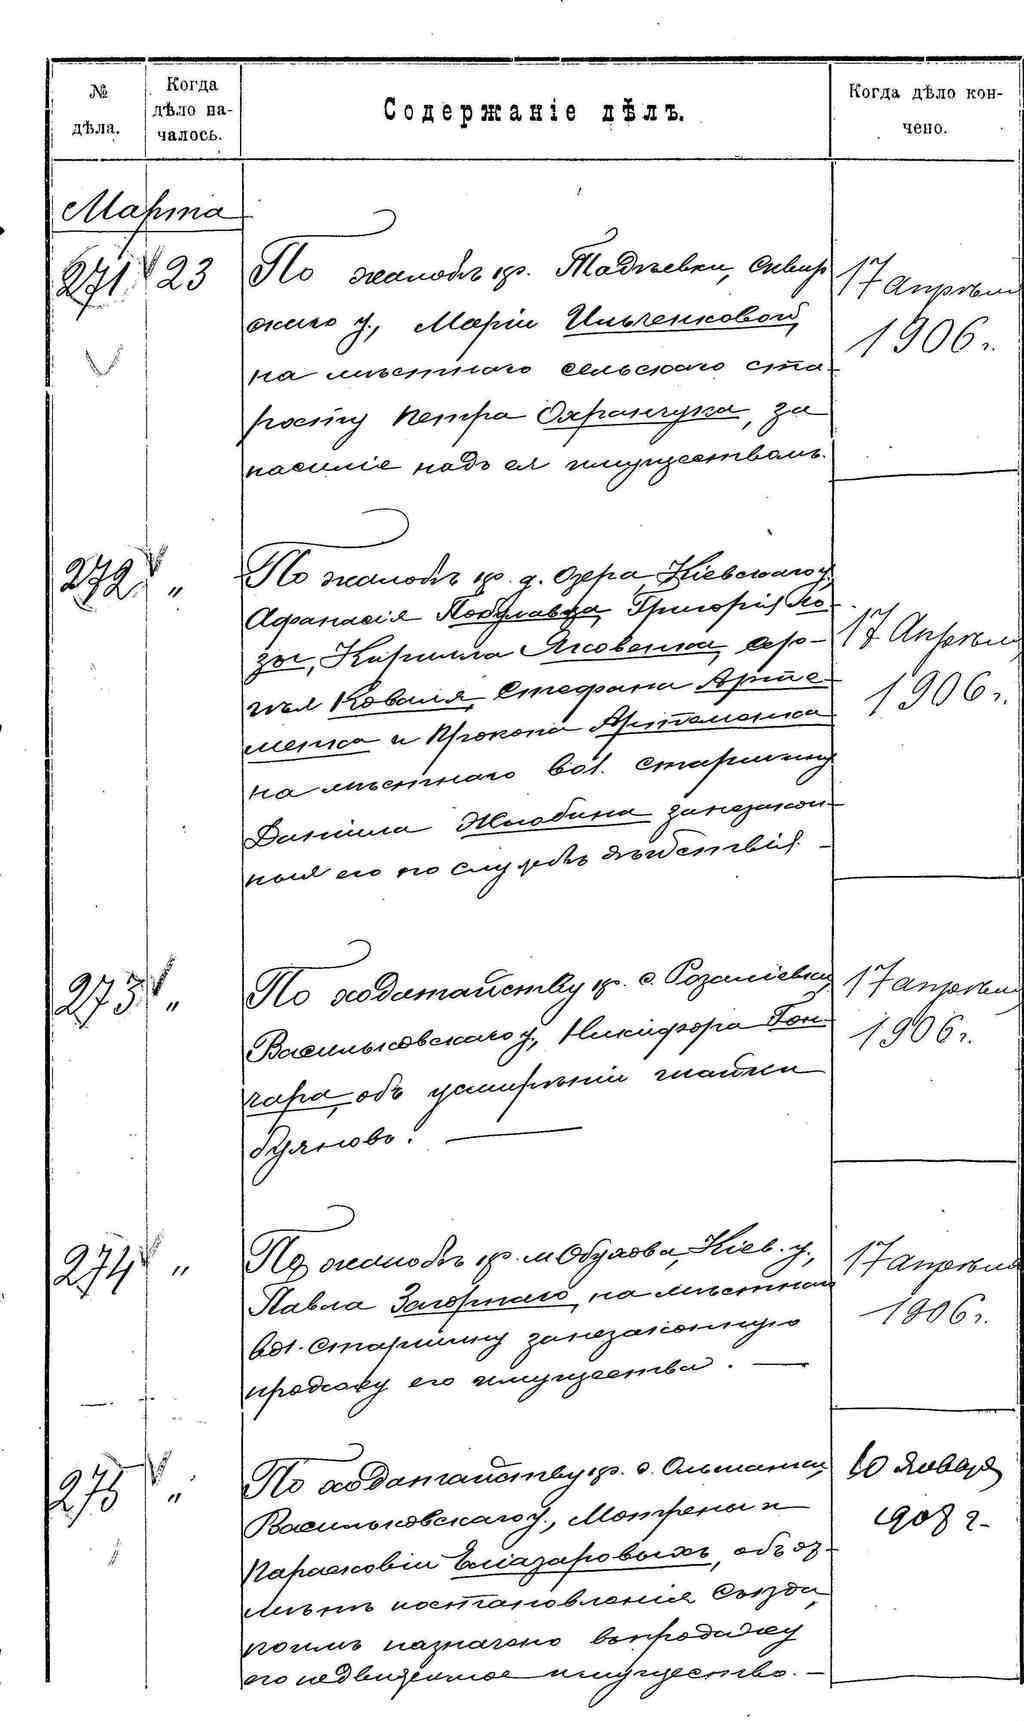 № дѣла.
Когда дѣло началось.
Содержаніе дѣлъ.
Когда дѣло кончено.
Марта
271 23
По жалобѣ кр. Тадѣевки, Сквир
скаго у., Маріи Ильченковой,
на мѣстнаго сельскаго ста-
росту Петра Охранчука, за
насиліе надъ ея имуществомъ.
17 апрѣля
1906 г.
272 "
По жалобѣ кр. д. Озера, Кіевскаго у.
Афанасія Григорія Ло-
зы, Кирилла Яковенка, Сер-
гѣя Коваля, Стефана Арте-
менка и Прокопа Артеменка
на мѣстнаго вол. старшину
Даніила Жлобина за незакон-
ныя его по службѣ дѣйствія. –
17 Апрѣля
1906 г.
273 "
По ходатайству кр. с. Розаліевки,
Васильковскаго у., Никифора Гон-
чара, объ усмиреніи шайки
буяновъ. —
17 апрѣля
1906 г.
274 "
По жалобѣ кр. м. Обухова, Кіев. у.,
Павла Загорнаго, на мѣстнаго
вол. старшину за незаконную
продажу его имущества. —
17 апрѣля
1906 г.
275 "
По ходатайству кр. с. Ольшанки,
Васильковскаго у., Мотрены и
Парасковіи Елазаровыхъ, объ от-
мѣнѣ постановленія Съѣзда,
коимъ назначено въ продажу
его недвижимое имущество. –
10 Января
1908 г.